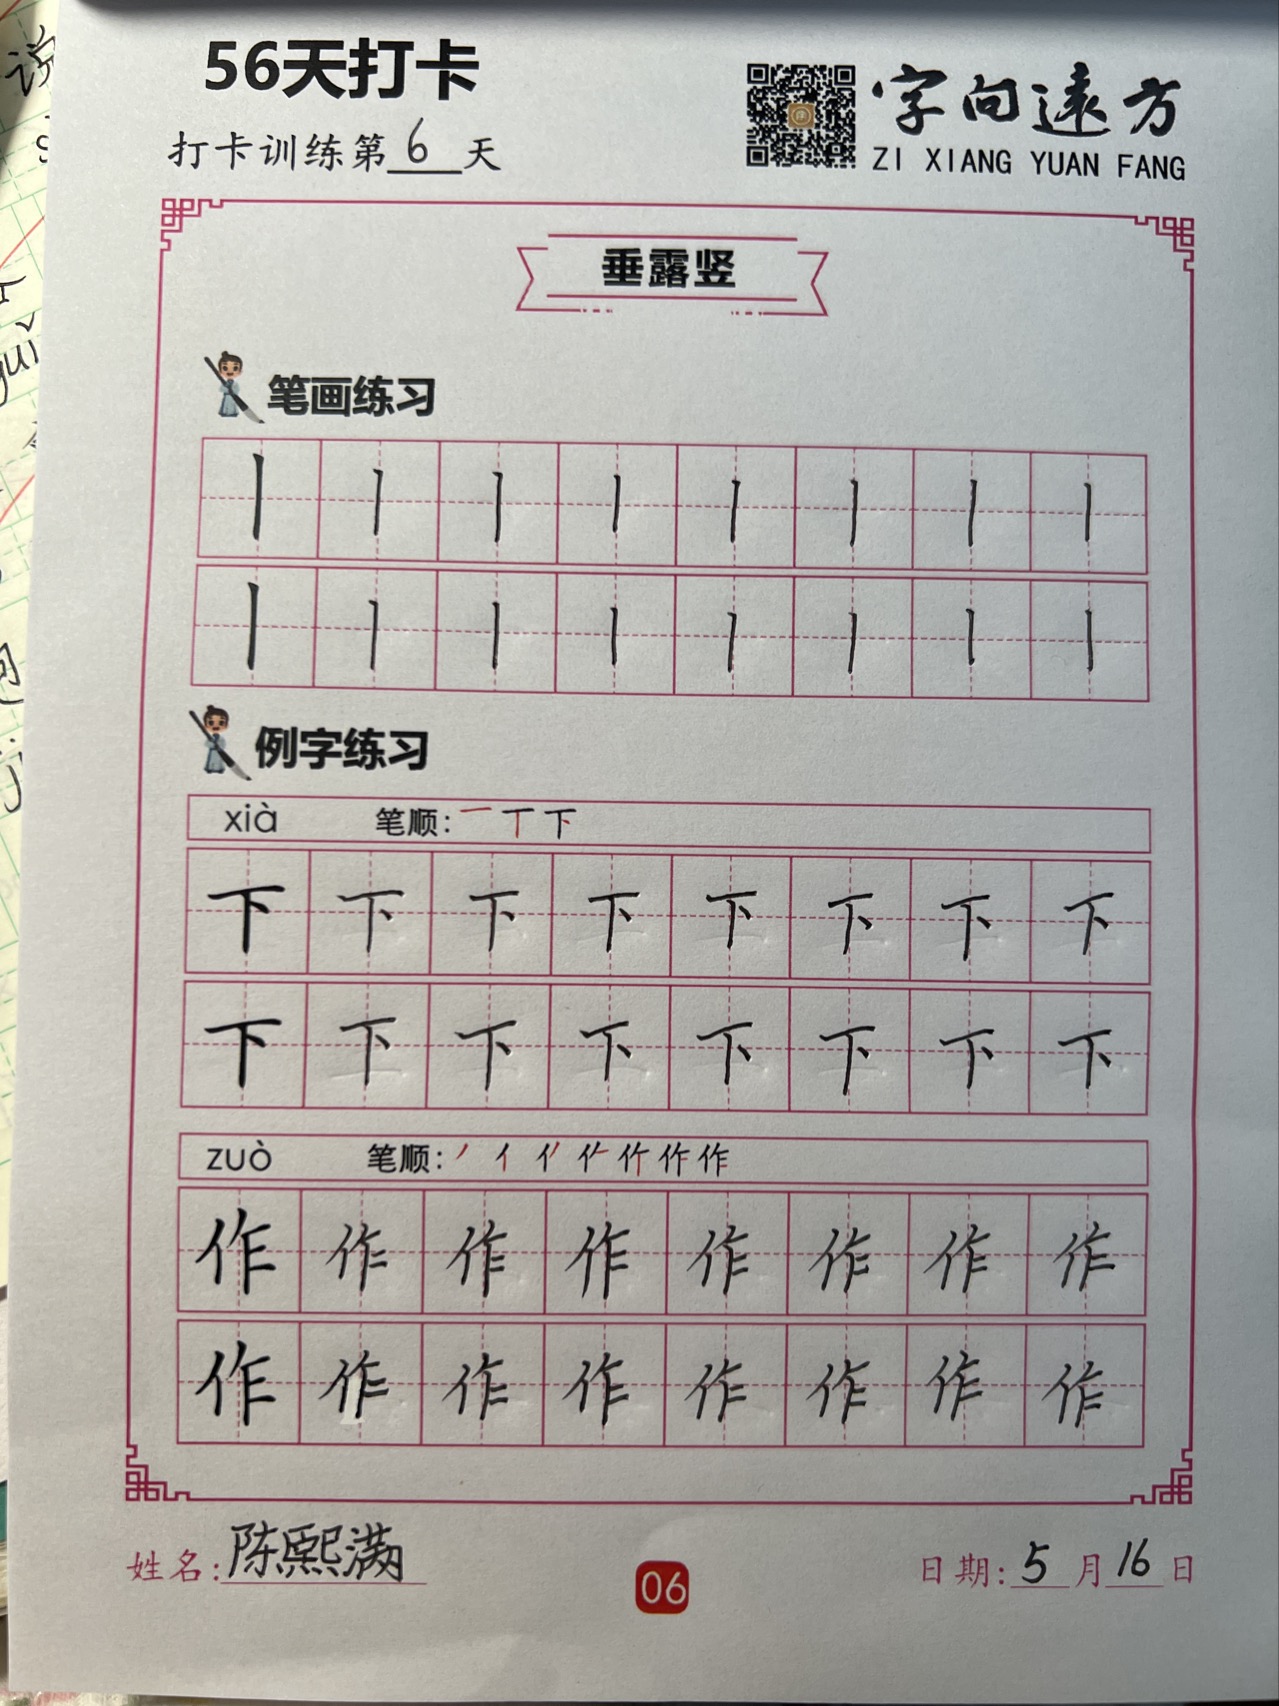 56天打卡
打卡训练第6天
字向遠方
ZI XIANG YUAN FANG
垂露竖
笔画练习
丨 丨 丨 丨 丨 丨 丨 丨
丨 丨 丨 丨 丨 丨 丨 丨
例字练习
xià 笔顺: 一 丅 下
下 下 下 下 下 下 下 下
下 下 下 下 下 下 下 下
zuò 笔顺:
作 作 作 作 作 作 作 作
作 作 作 作 作 作 作 作
姓名:陈熙满
06
日期:5月16日